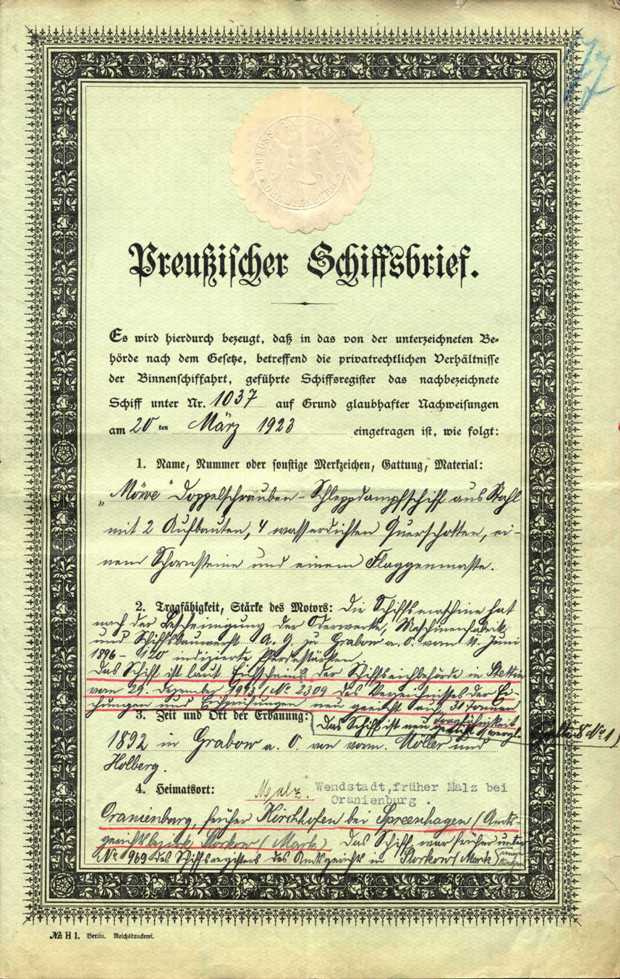 77
Preußischer Schiffsbrief.
Es wird hierdurch bezeugt, daß in das von der unterzeichneten Be-
hörde nach dem Gesetze, betreffend die privatrechtlichen Verhältnisse
der Binnenschiffahrt, geführte Schiffsregister das nachbezeichnete
Schiff unter Nr. 1037 auf Grund glaubhafter Nachweisungen
am 20 ten März 1923 eingetragen ist, wie folgt:
1. Name, Nummer oder sonstige Merkzeichen, Gattung, Material:
„Möwe“ Doppelschrauben-Schleppdampfschiff aus Stahl
mit 2 Aufbauten, 4 wasserdichten Querschotten, ei-
nem Schornsteine und einem Flaggenmaste.
2. Tragfähigkeit, Stärke des Motors: Die Schiffsmaschine hat
nach der Bescheinigung der Oderwerke, Maschinenfabrik
und Schiffsbauwerft A. G. zu Grabow a. O. vom 4. Juni
1896 120 indizierte Pferdestärken.
Das Schiff ist laut der Schiffseichbehörde in Stettin
vom 29. Dezember No 2309 des Verzeichnisses der Ei-
chungen und neu geeicht auf 31 Tonnen
3. Zeit und Ort der Erbauung: Das Schiff ist neu geeicht, vergl. No 1)
Tragfähigkeit
1892 in Grabow a. O. von vorm. Möller und
Holberg.
4. Heimatsort: Malz. Wendstadt,früher Malz bei
Oranienburg.
Oranienburg, früher Kirchhofen bei Spreenhagen (Amts-
gerichtsbezirk Storkow (Mark). Das Schiff war früher unter
No 969 des Schiffsregisters des Amtsgerichts in Storkow (Mark)
№ H 1. Berlin. Reichsdruckerei.